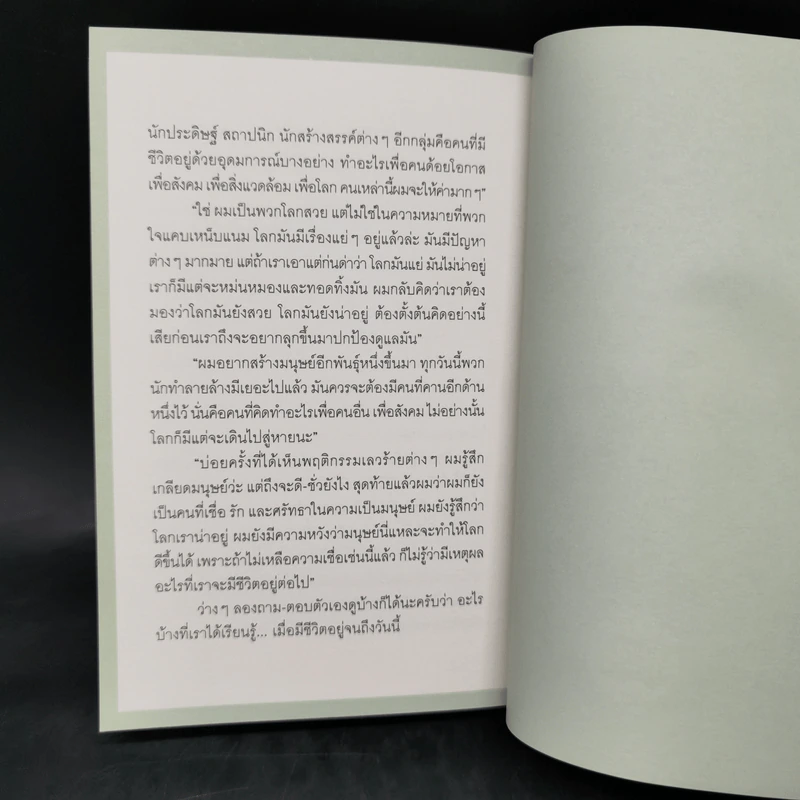 นักประดิษฐ์ สถาปนิก นักสร้างสรรค์ต่างๆ อีกกลุ่มคือคนที่มี
ชีวิตอยู่ด้วยอุดมการณ์บางอย่าง ทำอะไรเพื่อคนด้อยโอกาส
เพื่อสังคม เพื่อสิ่งแวดล้อม เพื่อโลก คนเหล่านี้ผมจะให้ค่ามากๆ”
“ใช่ ผมเป็นพวกโลกสวย แต่ไม่ใช่ในความหมายที่พวก
ใจแคบเหน็บแนม โลกมันมีเรื่องแย่ๆ อยู่แล้วล่ะ มันมีปัญหา
ต่างๆ มากมาย แต่ถ้าเราเอาแต่ก่นด่าว่า โลกมันแย่ มันไม่น่าอยู่
เราก็มีแต่จะหม่นหมองและทอดทิ้งมัน ผมกลับคิดว่าเราต้อง
มองว่าโลกมันยังสวย โลกมันยังน่าอยู่ ต้องตั้งต้นคิดอย่างนี้
เสียก่อนเราถึงจะอยากลุกขึ้นมาปกป้องดูแลมัน”
“ผมอยากสร้างมนุษย์อีกพันธุ์หนึ่งขึ้นมา ทุกวันนี้พวก
นักทำลายล้างมีเยอะไปแล้ว มันควรจะต้องมีคนที่คานอีกด้าน
หนึ่งไว้ นั่นคือคนที่คิดทำอะไรเพื่อคนอื่น เพื่อสังคม ไม่อย่างนั้น
โลกก็มีแต่จะเดินไปสู่หายนะ”
“บ่อยครั้งที่ได้เห็นพฤติกรรมเลวร้ายต่างๆ ผมรู้สึก
เกลียดมนุษย์ว่ะ แต่ถึงจะดี-ชั่วยังไง สุดท้ายแล้วผมว่าผมก็ยัง
เป็นคนที่เชื่อ รัก และศรัทธาในความเป็นมนุษย์ ผมยังรู้สึกว่า
โลกเราน่าอยู่ ผมยังมีความหวังว่ามนุษย์นี่แหละจะทำให้โลก
ดีขึ้นได้ เพราะถ้าไม่เหลือความเชื่อเช่นนี้แล้ว ก็ไม่รู้ว่ามีเหตุผล
อะไรที่เราจะมีชีวิตอยู่ต่อไป”
ว่างๆ ลองถาม-ตอบตัวเองดูบ้างก็ได้นะครับว่า อะไร
บ้างที่เราได้เรียนรู้... เมื่อมีชีวิตอยู่จนถึงวันนี้